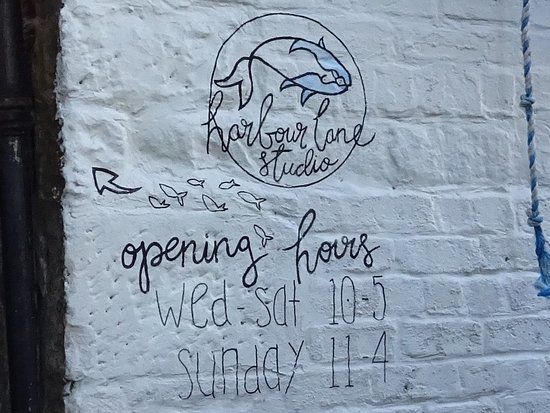 harbour lane
studio
opening hours
wed-sat 10-5
sunday 11-4